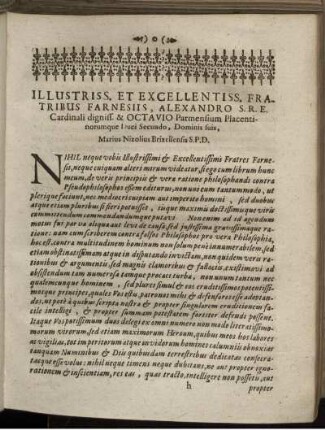 ILLUSTRISS. ET EXCELLENTISS. FRA-
TRIBUS FARNESIIS, ALEXANDRO S.R.E.
Cardinali digniss. & OCTAVIO Parmensium Placenti-
norumque Duci Secundo, Dominis suis,
Marius Nizolius Brixellensis S.P.D.
NIHIL neque vobis Illustrissimi & Excellentissimi Fratres Farne-
si, neque cuiquam alteri mirum videatur, si ego cum librum hunc
meum, de veris principiis & vera ratione philosophandi contra
Pseudophilosophos essem editurus, non uno eum tantummodo, ut
plerique faciunt, neo mediocri cuipiam aut imperito homini, sed duobus
atque etiam pluribus si fieri potuisset, iisque maximis doctissimisque viris
commendandumque putavi. Non enim ad id agendum
motus fui parva aliqua aut levi de causa, sed justissima gravissimaque ra-
tione: nam cum scriberem contra falsos Philosophos pro vera Philosophia,
hoc est, contra multitudinem hominum non solum pene innumerabilem, sed
etiam obstinatissimam atque in disputando invictam, non quidem veris ra-
tionibus & argumentis, sed magnis clamoribus &
non unum tantum nec
qualemcumque hominem, sed plures simul & eos eruditissimos potentissi-
mosque principes, quales Vos estis, patronos mihi & defensores esse adeptan-
dos, ut potè à quibus scripta nostra & propter singularem eruditionem fa-
cile intelligi, & propter summam potestatem forsiter defendi possent.
Itaque Vos potissimum duos delegi ex omni numero non modo literatissimo-
rum virorum, sed etiam maximorum Heroum, quibus meos hos labores
ac vigilias, tot imperitorum atque invidorum hominum calumniis obnoxias
tanquam Numinibus & Diis quibusdam terrestribus dedicatas consecra-
tasque esse volui: nihil neque timens neque dubitans, ne aut propter igno-
rationem & inscientiam, res eas, quas tracto, intelligere non possetis, aut
h propter